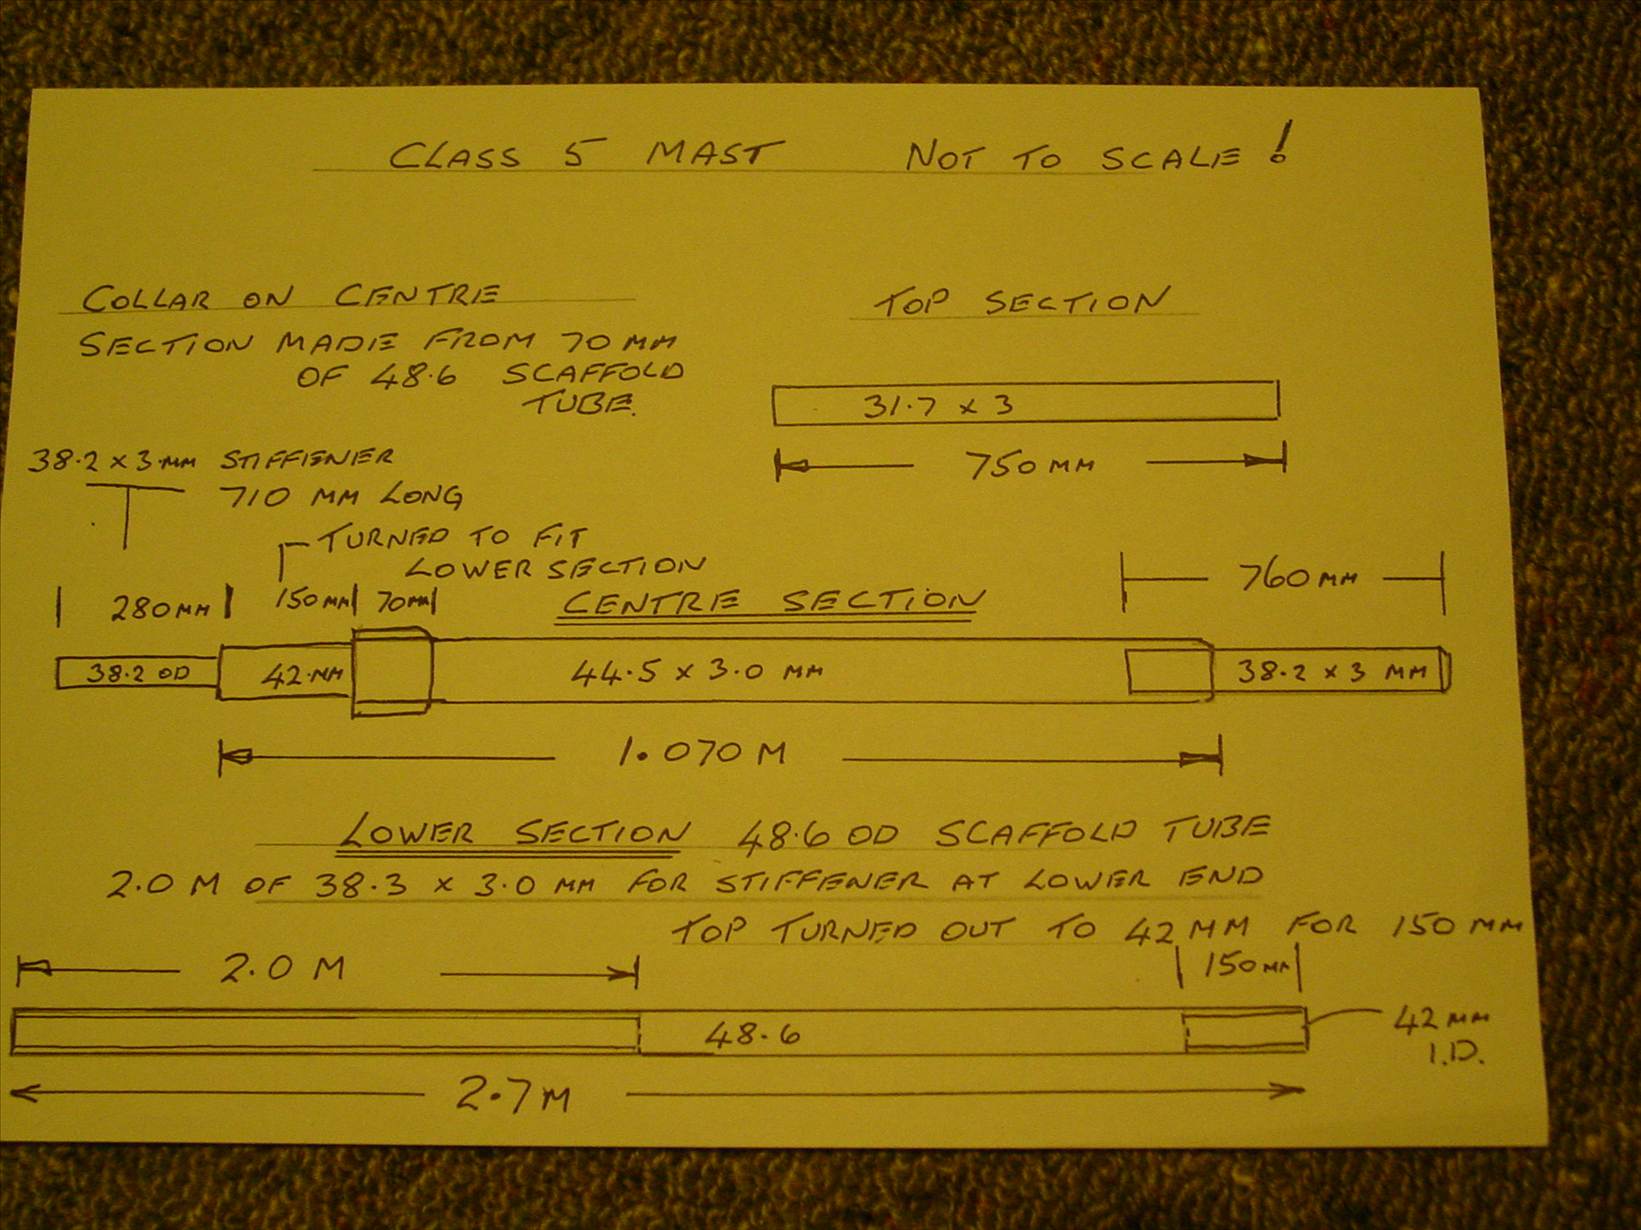 CLASS 5 MAST NOT TO SCALE!
COLLAR ON CENTRE
SECTION MADE FROM 70 MM
OF 48.6 SCAFFOLD
TUBE.
TOP SECTION
31.7 x 3
750 MM
38.2 x 3 MM STIFFENER
710 MM LONG
TURNED TO FIT
LOWER SECTION
280 MM
150 MM
70 MM
CENTRE SECTION
760 MM
38.2 OD
42 MM
44.5 x 3.0 MM
38.2 x 3 MM
1.070 M
LOWER SECTION 48.6 OD SCAFFOLD TUBE
2.0 M OF 38.3 x 3.0 MM FOR STIFFENER AT LOWER END
TOP TURNED OUT TO 42 MM FOR 150 MM
2.0 M
150 MM
48.6
42 MM
I.D.
2.7 M